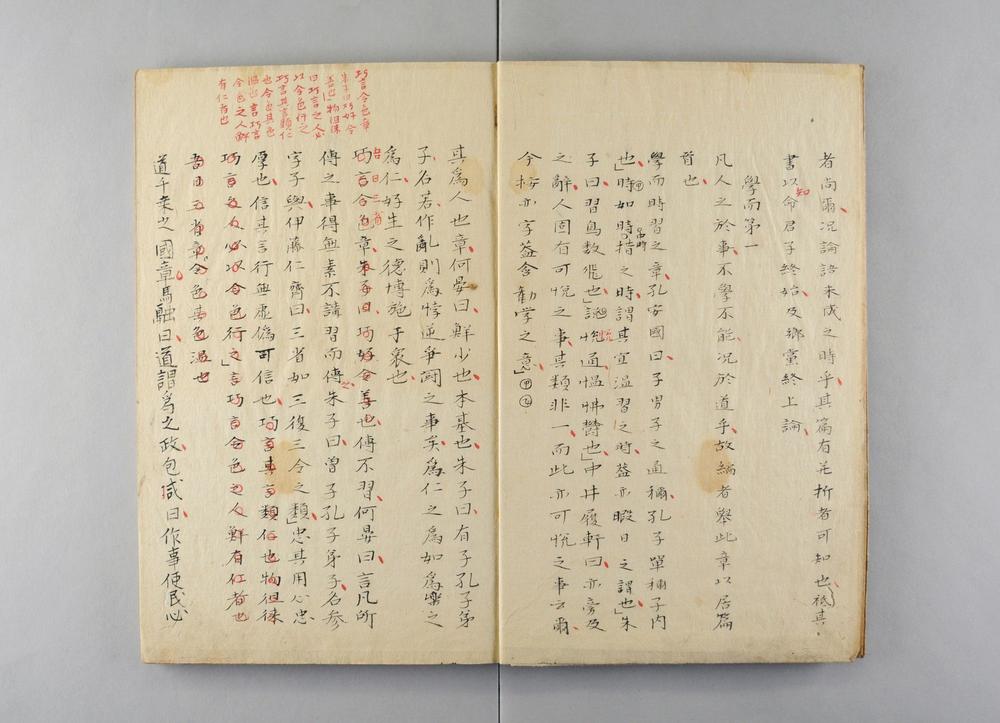 者尚爾況論語未成之時乎其篇有并析者可知也祗其
書以命君子終始及鄉黨終上論
知
學而第一
凡人之於事不學不能況於道乎故編者舉此章以居篇
首也
學而時習之章孔安國曰子男子之通稱孔子單稱子內
也時如時措之時謂其宜溫習之時蓋亦暇日之謂也朱
子曰習鳥數飛也說悅通慍怫鬱也中井履軒曰亦旁及
之辭人固有可悅之事其類非一而此亦可悅之事云爾
今按亦字蓋含勸學之意
其為人也章何晏曰鮮少也本基也朱子曰有子孔子弟
子名若作亂則為悖逆爭鬪之事矣為仁之為如為樂之
為仁好生之德博施于衆也
吾日三省
巧言令色章朱子曰巧好令善也傳不習何晏曰言凡所
傳之事得無素不講習而傳之朱子曰曾子孔子弟子名參
字子輿伊藤仁齋曰三省如三復三令之類忠其用心忠
厚也信其言行無虛偽可信也巧言其言類仁也物徂徠
巧言之人必以令色行之言巧言令色之人鮮有仁者也
吾日三省章令色其色溫也
道千乘之國章馬融曰道謂為之政包咸曰作事使民必
巧言令色章
朱子曰巧好令
善也物徂徠
曰巧言之人必
以令色行之
巧言其言類仁
也令色其色
溫也言巧言
令色之人鮮
有仁者也